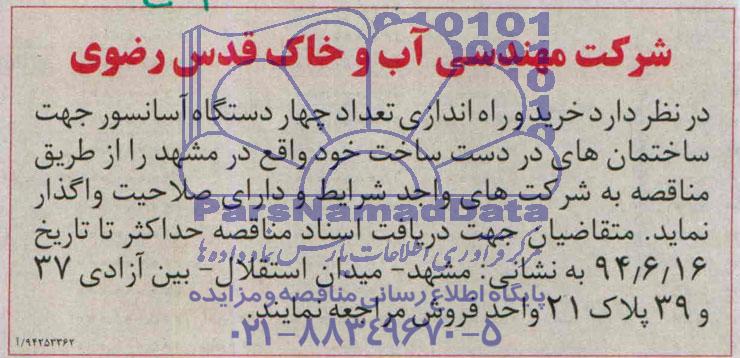 شرکت مهندسی آب و خاک قدس رضوی
در نظر دارد خرید و راه اندازی تعداد چهار دستگاه آسانسور جهت
ساختمان های در دست ساخت خود واقع در مشهد را از طریق
مناقصه به شرکت های واجد شرایط و دارای صلاحیت واگذار
نماید. متقاضیان جهت دریافت اسناد مناقصه حداکثر تا تاریخ
۹۴٫۶٫۱۶ به نشانی: مشهد- میدان استقلال- بین آزادی ۳۷
و ۳۹ پلاک ۲۱ واحد فروش مراجعه نمایند.
۹۴۲۵۳۳۶۲/آ
ParsNamadData
مرکز فرآوری اطلاعات پارس نماد داده ها
پایگاه اطلاع رسانی مناقصه و مزایده
۰۲۱-۸۸۳۴۹۶۷۰-۵